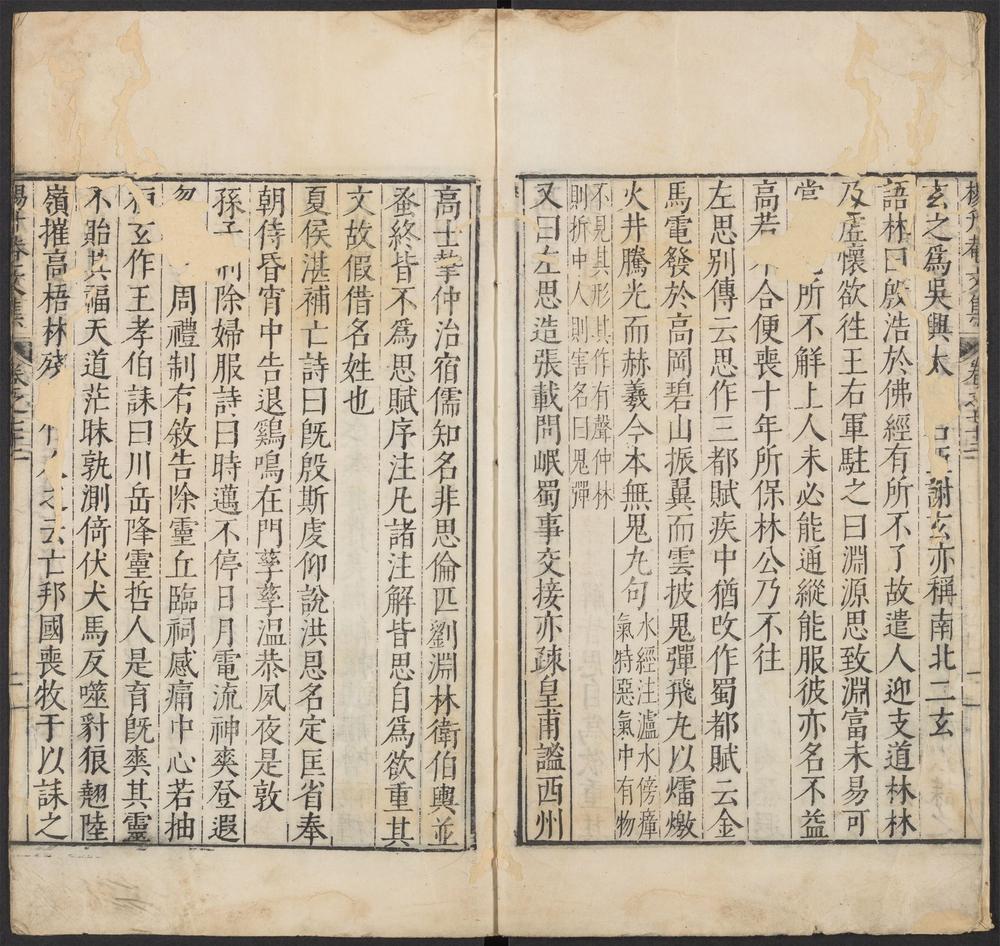 楊升庵文集 卷之七十二
玄之爲吳興太 謝玄亦稱南北二玄
語林曰殷浩於佛經有所不了故遣人迎支道林林
及虛懷欲往王右軍駐之曰淵源思致淵富未易可
當 所不解上人未必能通縱能服彼亦名不益
高若 合便喪十年所保林公乃不往
左思別傳云思作三都賦疾中猶改作蜀都賦云金
馬電發於高岡碧山振翼而雲披鬼彈飛丸以爞燉
火井騰光而赫羲今本無鬼丸句
水經注瀘水傍瘴
氣特惡氣中有物
不見其形其作有聲仲林
則折中人則害名曰鬼彈
又曰左思造張載問岷蜀事交接亦疎皇甫謐西州
高士摯仲治宿儒知名非思倫匹劉淵林衛伯輿並
蚤終皆不爲思賦序注凡諸注解皆思自爲欲重其
文故假借名姓也
夏侯湛補亡詩曰旣殷斯虔仰說洪恩名定匡省奉
朝侍昏宵中告退鷄鳴在門孳孳温恭夙夜是敦
孫子 除婦服詩曰時邁不停日月電流神爽登遐
忽 周禮制有敘告除靈丘臨祠感痛中心若抽
玄作王孝伯誄曰川岳降靈哲人是育旣爽其靈
不貽其福天道茫昧孰測倚伏犬馬反噬豺狼翹陸
嶺摧高梧林殘 人之云亡邦國喪牧于以誄之
楊升庵文集 卷之七十二 二